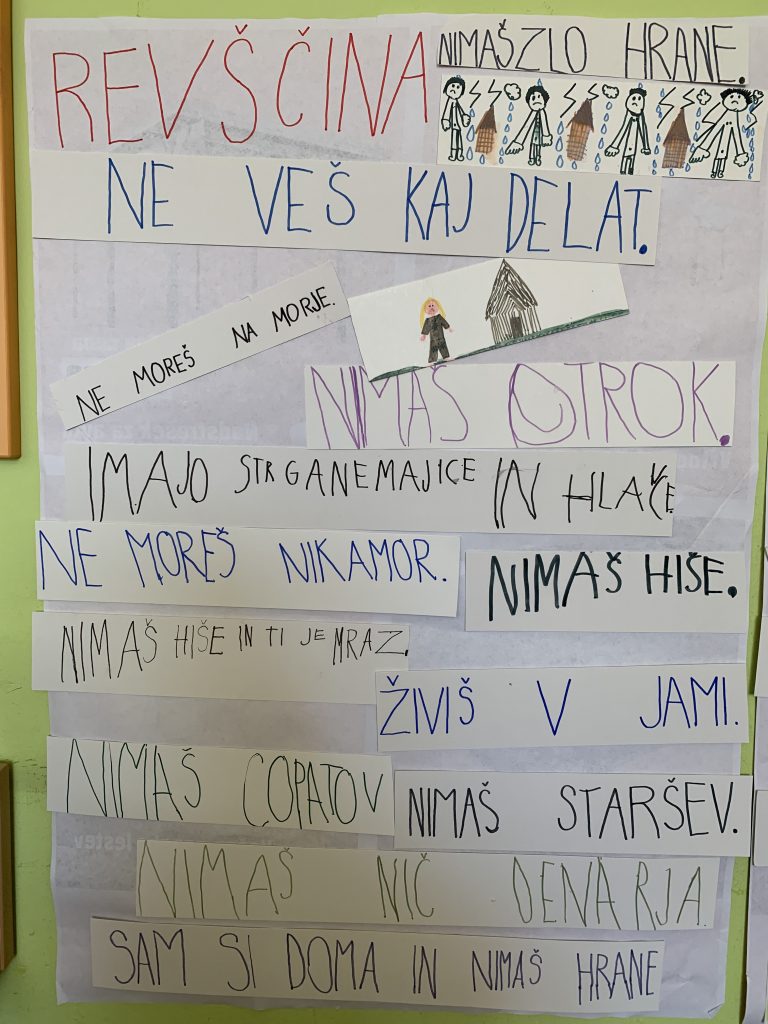 REVŠČINA
NIMAŠ ZLO HRANE.
NE VEŠ KAJ DELAT.
NE MOREŠ NA MORJE.
NIMAŠ OTROK.
IMAJO STRGANE MAJICE IN HLAČE
NE MOREŠ NIKAMOR.
NIMAŠ HIŠE.
NIMAŠ HIŠE IN TI JE MRAZ.
ŽIVIŠ V JAMI.
NIMAŠ COPATOV
NIMAŠ STARŠEV.
NIMAŠ NIČ DENARJA
SAM SI DOMA IN NIMAŠ HRANE